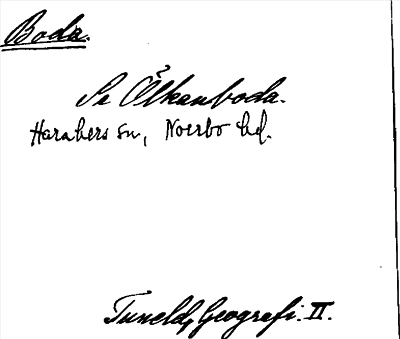 Boda.
Se Ölkenboda.
Harakers sn, Norrbo hd.
Tuneld, Geografi. II.